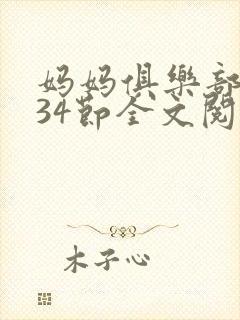 妈妈俱樂部
34節全文閱
木子心